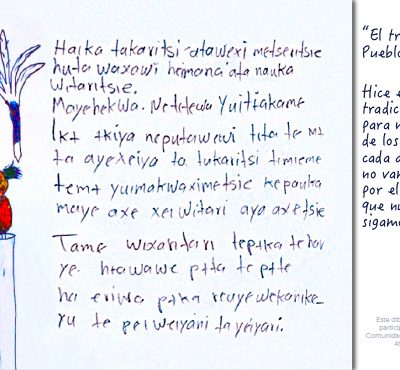 Haika tukaritsi-atawexi metseritsie
huta waxawi heimana'ata nauka
witaritsie.
Mayehekwa. Netetewa Yuitɨakame
Ikɨ ɨkiya neputawewi tita te mɨ
ta ayexeiya ta tukaritsi timieme
temɨ yuimakwaximetsie kepauka
maye axe xeiwitari aya axetsie
Tame wixaritari tepɨka te
ye. pɨta te pɨte
ha eriwa pɨka reuyewekarike_
yu te peiweiyani ta yeiyari.
"El tr
Pueblo
Hice e
tradic
para n
de los
cada a
no van
por el
que nu
sigamo
Este dib
partici
Comunida